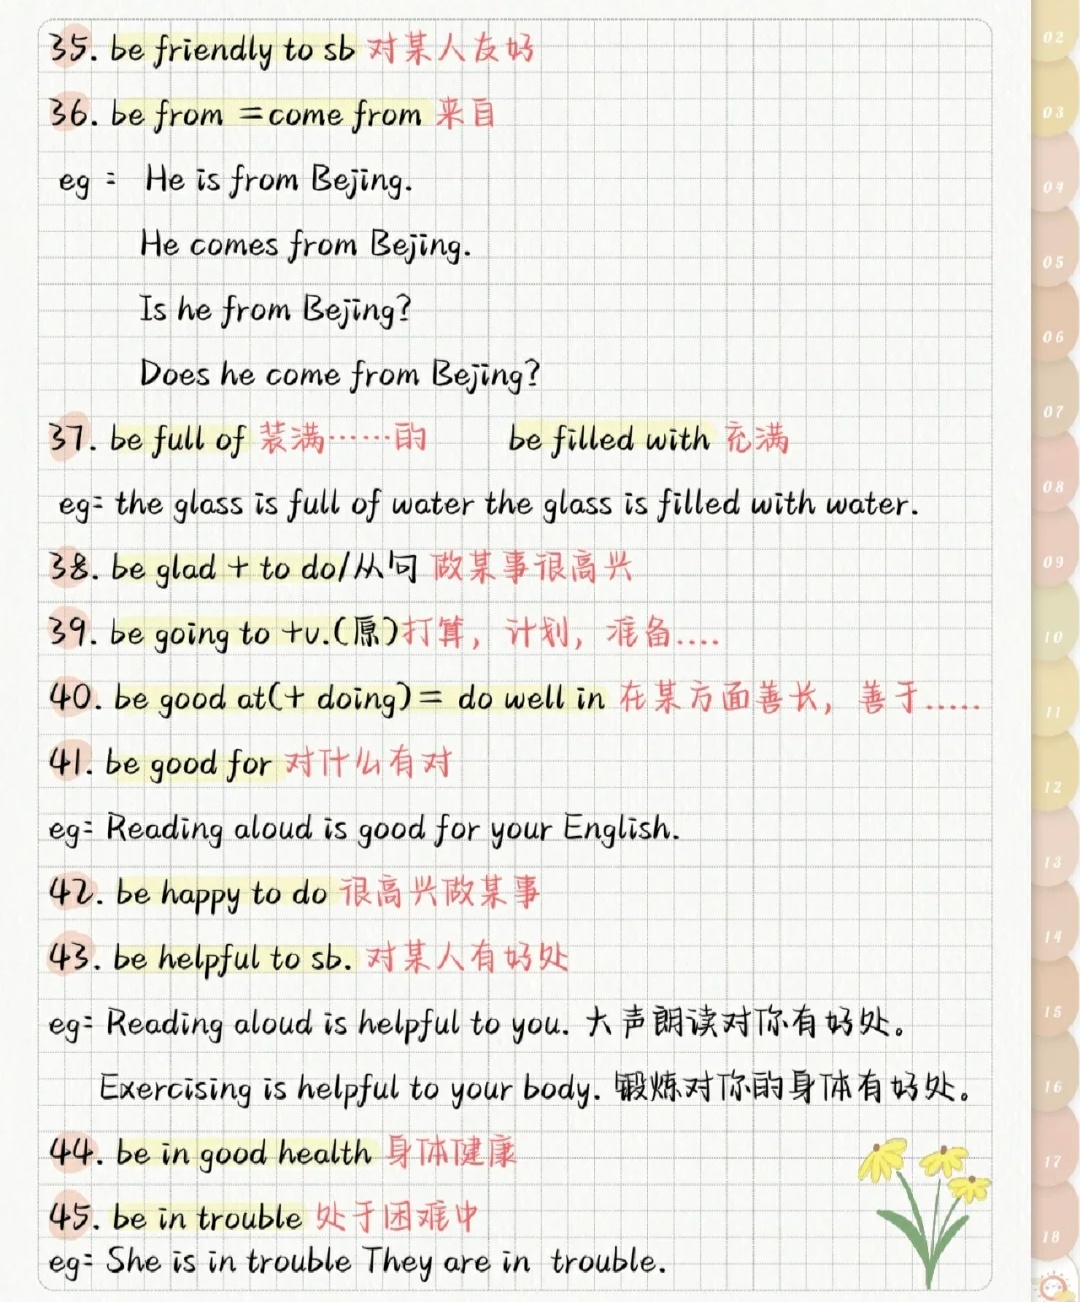 35. be friendly to sb 对某人友好
36. be from =come from 来自
eg : He is from Bejing.
He comes from Bejing.
Is he from Bejing?
Does he come from Bejing?
37. be full of 装满……的 be filled with 充满
eg: the glass is full of water the glass is filled with water.
38. be glad + to do/从句 做某事很高兴
39. be going to +v.(原)打算, 计划, 准备....
40. be good at(+ doing)= do well in 在某方面善长, 善于.....
41. be good for 对什么有对
eg: Reading aloud is good for your English.
42. be happy to do 很高兴做某事
43. be helpful to sb. 对某人有好处
eg: Reading aloud is helpful to you. 大声朗读对你有好处。
Exercising is helpful to your body. 锻炼对你的身体有好处。
44. be in good health 身体健康
45. be in trouble 处于困难中
eg: She is in trouble They are in trouble.
02
03
04
05
06
07
08
09
10
11
12
13
14
15
16
17
18